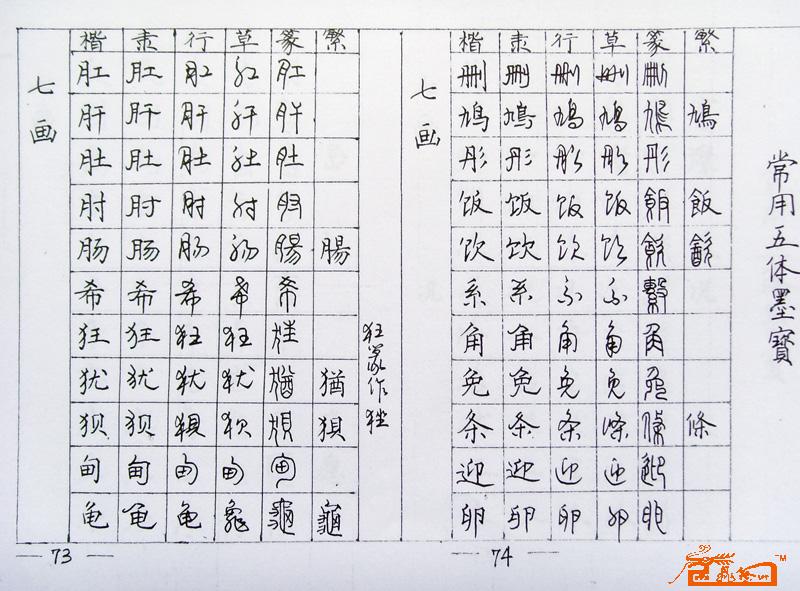 楷 隶 行 草 篆 繁
七画
肛 肛 肛 肛 肛
肝 肝 肝 肝 肝
肚 肚 肚 肚 肚
肘 肘 肘 肘 肘
肠 肠 肠 肠 腸 腸
希 希 希 希 希
狂 狂 狂 狂 狂
犹 犹 犹 犹 猶 猶
狈 狈 狽 狈 狽 狽
甸 甸 甸 甸 甸
龟 龟 龟 龜 龜 龜
狂篆作狴
73
楷 隶 行 草 篆 繁
七画
删 删 删 删 删
鸠 鸠 鸠 鸠 鳩 鳩
彤 彤 彤 彤 彤
饭 饭 饭 饭 飯 飯
饮 饮 饮 饮 飲
系 系 系 系 繫
角 角 角 角 角
免 免 免 免 免
条 条 条 條 條 條
迎 迎 迎 迎 迎
卵 卵 卵 卵 卵
74
常用五体墨寶